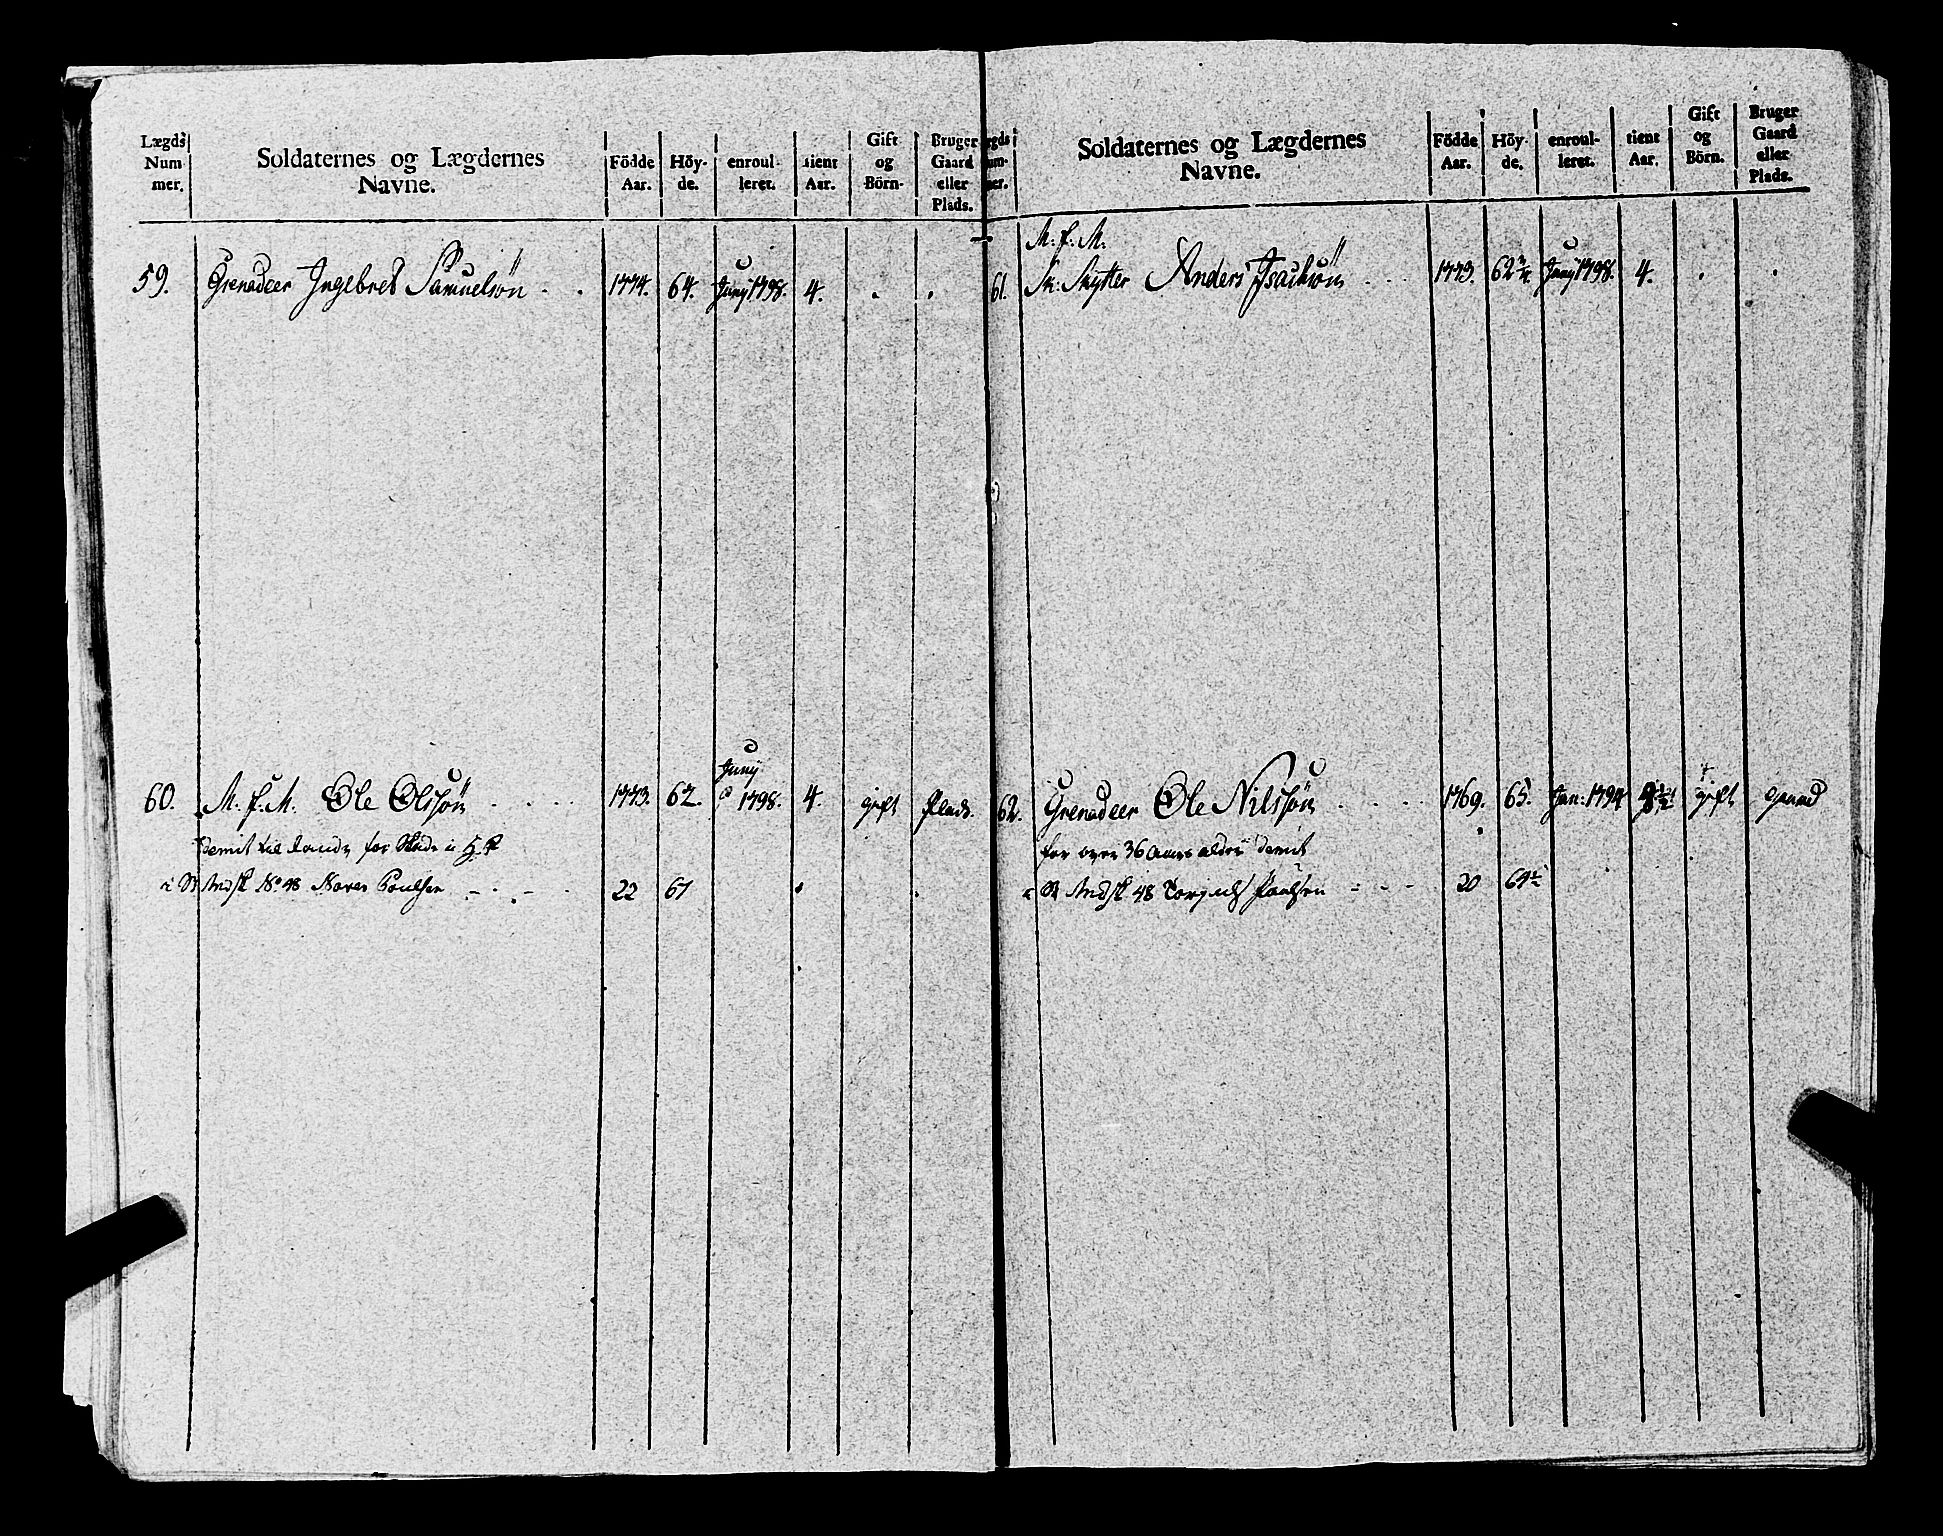 Lægds Num mer. Soldaternes og Lægdernes Navne. Födde Aar. Höy- de. enroul- leret. tient Aar. Gift og Börn. Bruger Gaard eller Plads.
59. Grenadeer Ingebret Samuelsøn . . 1774. 64. Junÿ 1798. 4. . .
60. M. f. M. Ole Olssøn . . . . 1773. 62. Junÿ 1798. 4. gift Plads.
demit til
No 48 Poulsen . . . 22 67
Soldaternes og Lægdernes Navne. Födde Aar. Höy- de. enroul- leret. tient Aar. Gift og Börn. Bruger Gaard eller Plads.
M. f. M.
61. Sk: Skytter Anders Isachsøn . . . 1773. 62 Junÿ 1798. 4. . .
62. Grenadeer Ole Nilssøn . . . . 1769. 65. Jan: 1794 gift gaard
for over 36 Aars alder demit
48 Paulsen . . . 20 64½